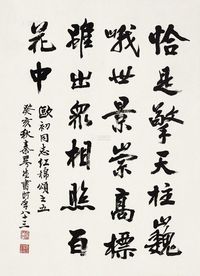 恰是擎天柱巍
峨世景崇高標
雖出眾相照百
花中
歐初同志紅棉頌之五
癸亥秋秦咢生書時年八十三